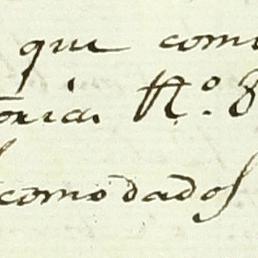 que com
oria. N.º 8
comodados